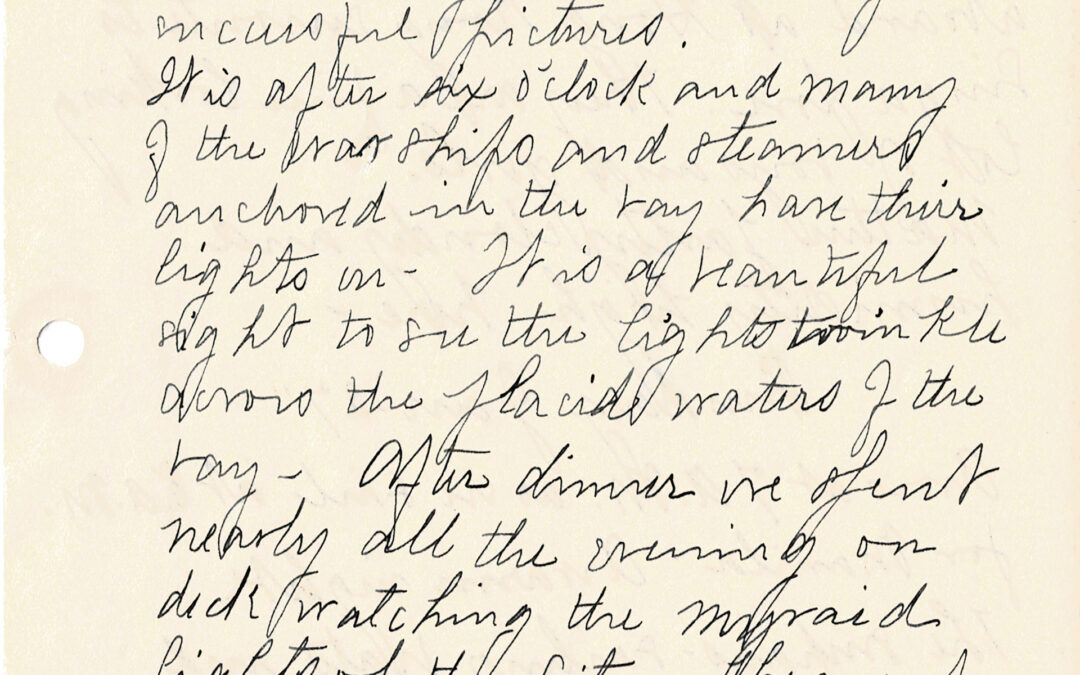 successful pictures.
It is after six o'clock and many
of the war ships and steamers
anchored in the bay have their
lights on - It is a beautiful
sight to see the lights twinkle
across the placid waters of the
bay - After dinner we spent
nearly all the evening on
deck watching the myraid
lights of the City